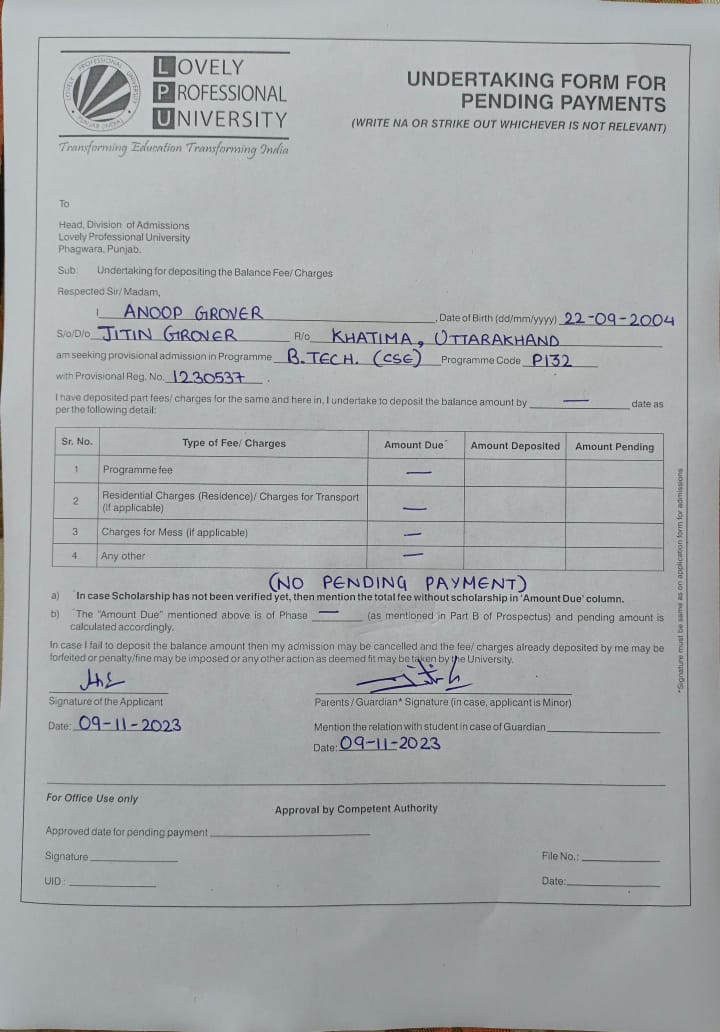 LOVELY
PROFESSIONAL
UNIVERSITY
Transforming Education Transforming India
LOVELY PROFESSIONAL UNIVERSITY
PUNJAB (INDIA)
UNDERTAKING FORM FOR
PENDING PAYMENTS
(WRITE NA OR STRIKE OUT WHICHEVER IS NOT RELEVANT)
To
Head, Division of Admissions
Lovely Professional University
Phagwara, Punjab.
Sub: Undertaking for depositing the Balance Fee/ Charges
Respected Sir/ Madam,
I ANOOP GROVER, Date of Birth (dd/mm/yyyy) 22-09-2004
S/o/D/o JITIN GROVER R/o KHATIMA, UTTARAKHAND
am seeking provisional admission in Programme B.TECH. (CSE) Programme Code P132
with Provisional Reg. No. 1230537.
I have deposited part fees/ charges for the same and here in, I undertake to deposit the balance amount by — date as
per the following detail:
Sr. No. Type of Fee/ Charges Amount Due* Amount Deposited Amount Pending
1 Programme fee —
2 Residential Charges (Residence)/ Charges for Transport
(if applicable) —
3 Charges for Mess (if applicable) —
4 Any other —
(NO PENDING PAYMENT)
a) *In case Scholarship has not been verified yet, then mention the total fee without scholarship in 'Amount Due' column.
b) *The "Amount Due" mentioned above is of Phase — (as mentioned in Part B of Prospectus) and pending amount is
calculated accordingly.
In case I fail to deposit the balance amount then my admission may be cancelled and the fee/ charges already deposited by me may be
forfeited or penalty/fine may be imposed or any other action as deemed fit may be taken by the University.
Signature of the Applicant
Parents / Guardian* Signature (in case, applicant is Minor)
Date: 09-11-2023
Mention the relation with student in case of Guardian
Date: 09-11-2023
*Signature must be same as on application form for admissions
For Office Use only
Approval by Competent Authority
Approved date for pending payment
Signature
File No.:
UID :
Date: